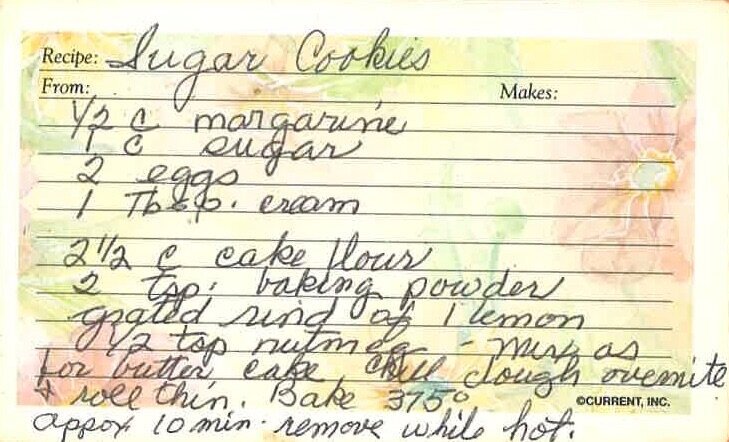 Recipe: Sugar Cookies
From: Makes:
1/2 c margarine
1 c sugar
2 eggs
1 Tbsp. cream
2 1/2 c cake flour
2 tsp. baking powder
grated rind of 1 lemon
1/2 tsp nutmeg - Mix as
for butter cake. Chill dough overnite
& roll thin. Bake 375°
©CURRENT, INC.
appox 10 min. remove while hot.